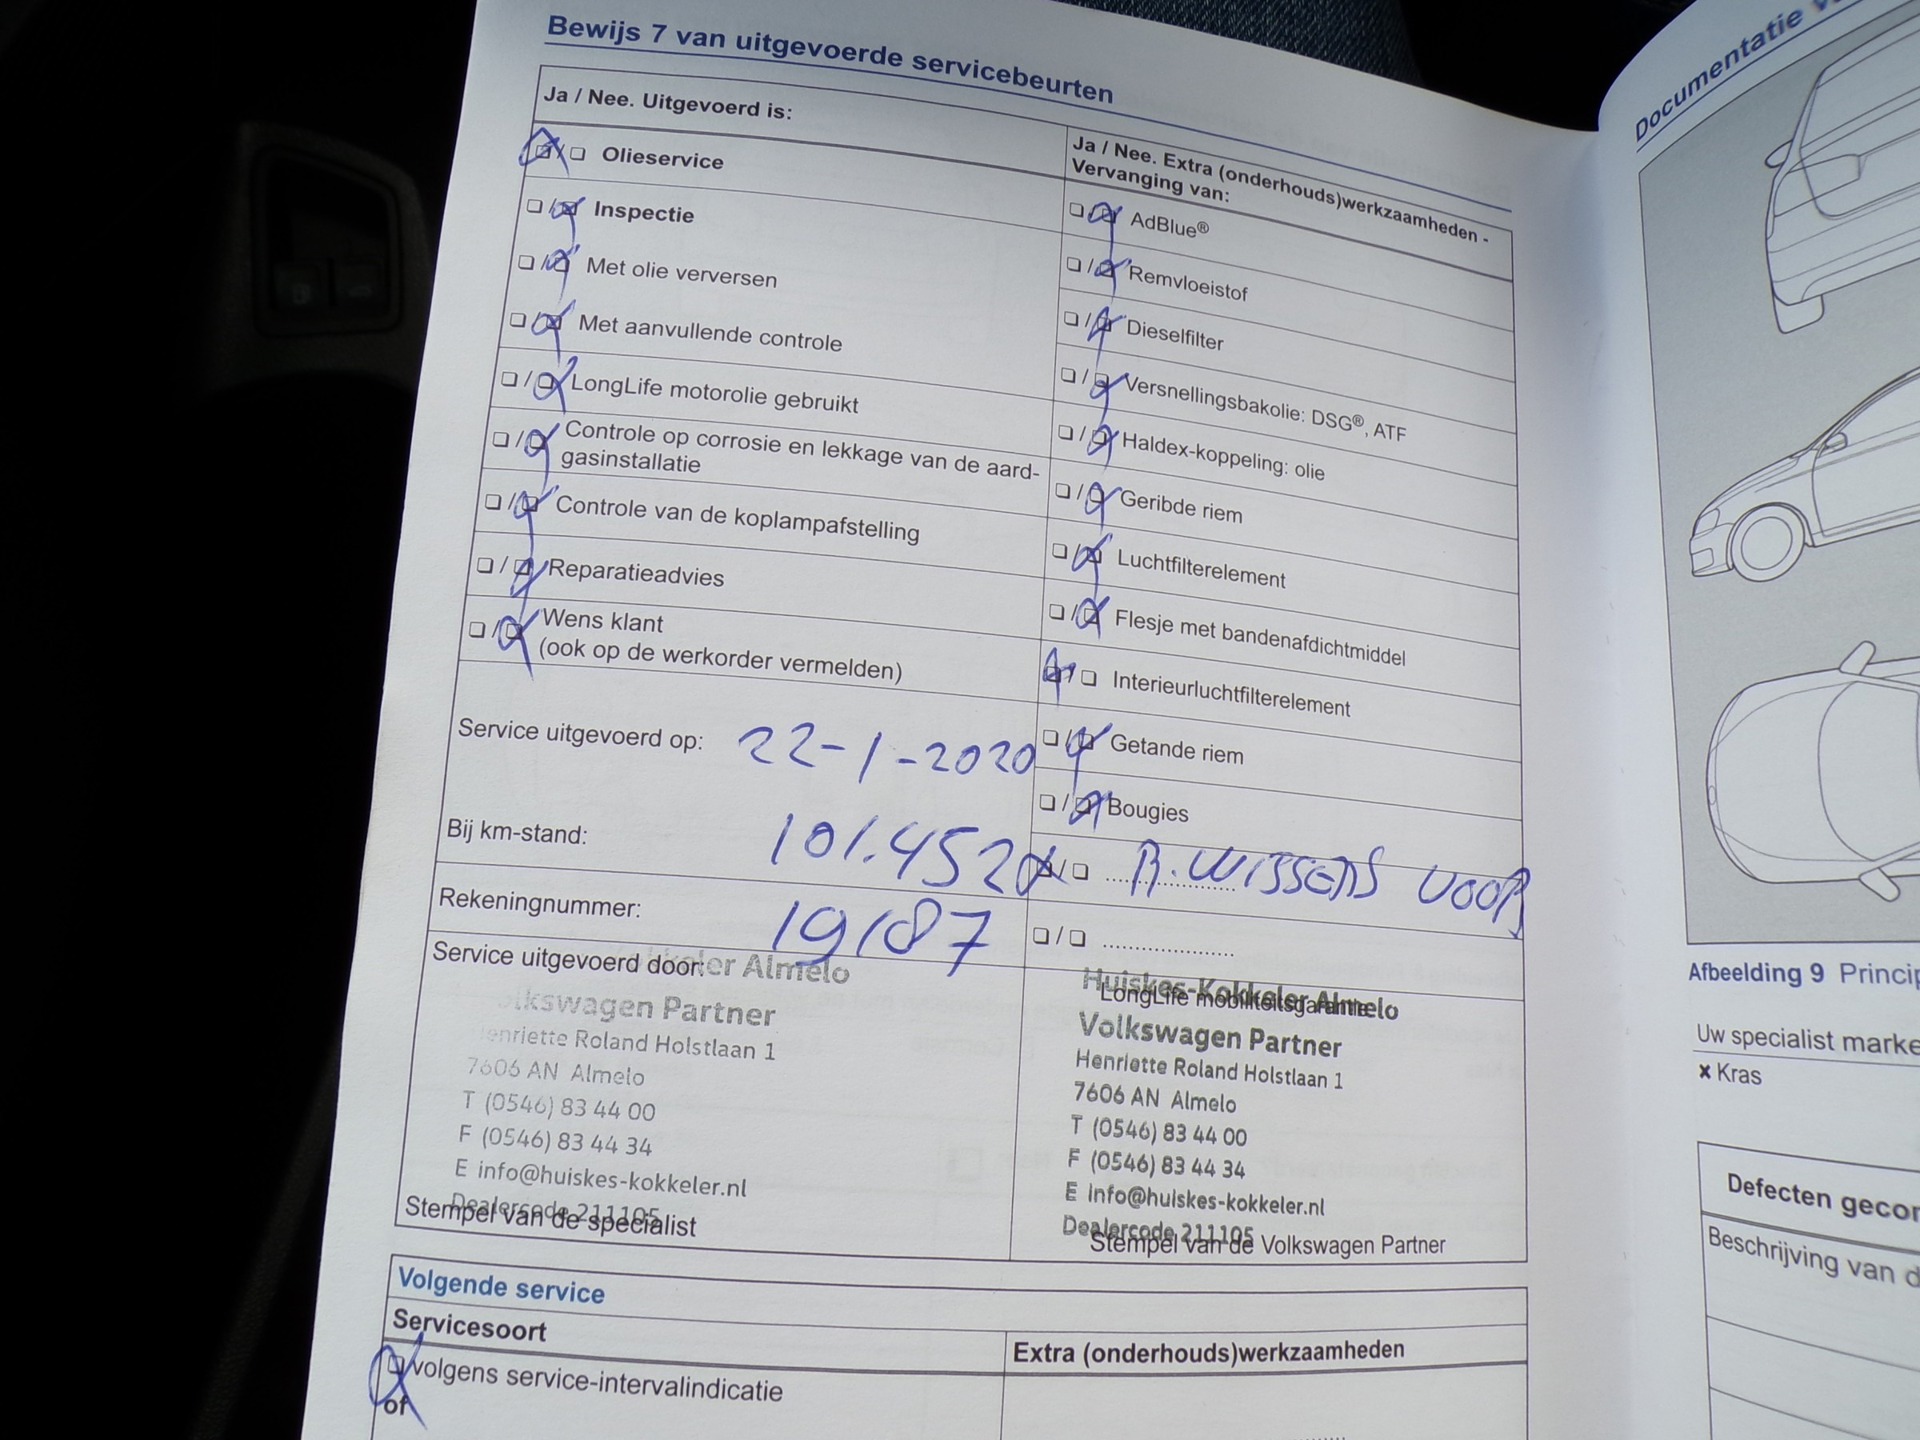 Bewijs 7 van uitgevoerde servicebeurten
Ja / Nee. Uitgevoerd is:
Olieservice
Inspectie
Met olie verversen
Met aanvullende controle
LongLife motorolie gebruikt
Controle op corrosie en lekkage van de aard-
gasinstallatie
Controle van de koplampafstelling
Reparatieadvies
Wens klant
(ook op de werkorder vermelden)
Service uitgevoerd op: 22-1-2020
Bij km-stand: 101.452
Rekeningnummer: 19187
Service uitgevoerd door:
Almelo
Volkswagen Partner
Henriette Roland Holstlaan 1
7606 AN Almelo
T (0546) 83 44 00
F (0546) 83 44 34
E info@huiskes-kokkeler.nl
Dealercode 211105
Stempel van de specialist
Ja / Nee. Extra (onderhouds)werkzaamheden -
Vervanging van:
AdBlue®
Remvloeistof
Dieselfilter
Versnellingsbakolie: DSG®, ATF
Haldex-koppeling: olie
Geribde riem
Luchtfilterelement
Flesje met bandenafdichtmiddel
Interieurluchtfilterelement
Getande riem
Bougies
R.WISSERS VOOR
Huiskes-Kokkeler Almelo
LongLife mobiliteitsgarantie
Volkswagen Partner
Henriette Roland Holstlaan 1
7606 AN Almelo
T (0546) 83 44 00
F (0546) 83 44 34
E info@huiskes-kokkeler.nl
Dealercode 211105
Stempel van de Volkswagen Partner
Volgende service
Servicesoort
Extra (onderhouds)werkzaamheden
volgens service-intervalindicatie
of
Documentatie
Afbeelding 9 Princip
Uw specialist marke
× Kras
Defecten gecor
Beschrijving van d